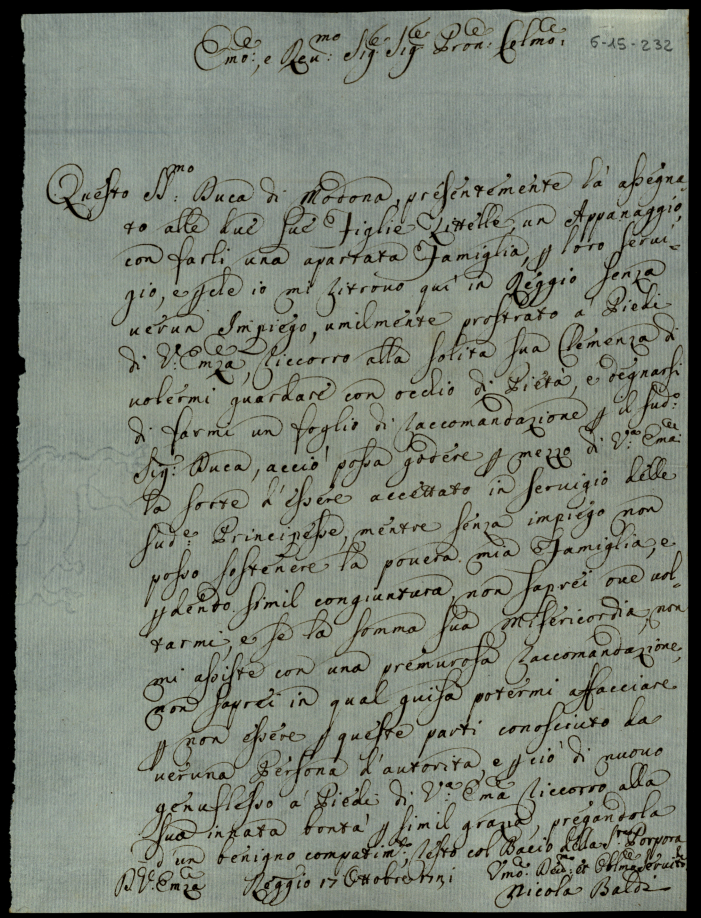 Em̃o:, e Reu:mo Sig:re Sig:re Pron:e Colmo:
6-15-232
Questo Ss:mo Duca di Modona, presentemente hà assegna
to alle due sue Figlie Zittelle, un Appanaggio,
con farli una apartata Famiglia, p loro servi-
gio, e io mi ritrouo qui in Reggio senza
uerun Impiego, umilmente prostrato a Piedi
di V:a Emza, riccorro alla solita sua Clemenza di
uolermi guardare con occhio di Pietà, e degnarsi
di farmi un foglio di raccomandazione p il sud:o
Sig:r Duca, acciò possa godere p mezzo di V:a Ema:
la sorte d'essere accettato in servigio delle
sud:e Principesse, mentre senza impiego non
posso sostenere la pouera mia Famiglia, e
pdendo simil congiuntura, non saprei oue uol-
tarmi, e se la somma sua Misericordia, non
mi assiste con una premurosa raccomandazione,
non saprei in qual guisa potermi affacciare
p non essere p queste parti conosciuto da
ueruna Persona d'autorità, e pciò di nuouo
genuflesso a' Piedi di V:a Ema riccorro alla
sua innata bontà p simil grazia, pregandola
d'un benigno compatim:to, resto col Bacio della S:ra Porpora
D V:a Emza Reggio 17 Ottobre Vmo: Deu:mo et Oblmo Seruit:e
Nicola Baldi